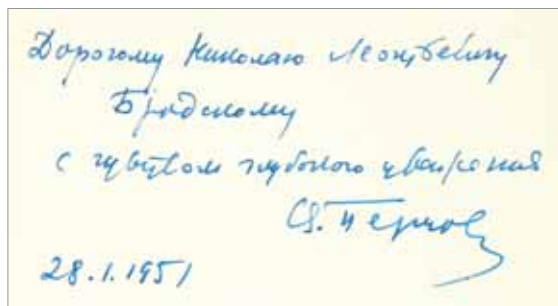 Дорогому Николаю Леонтьевичу
Бродскому
с чувством глубокого уважения
28.1.1951